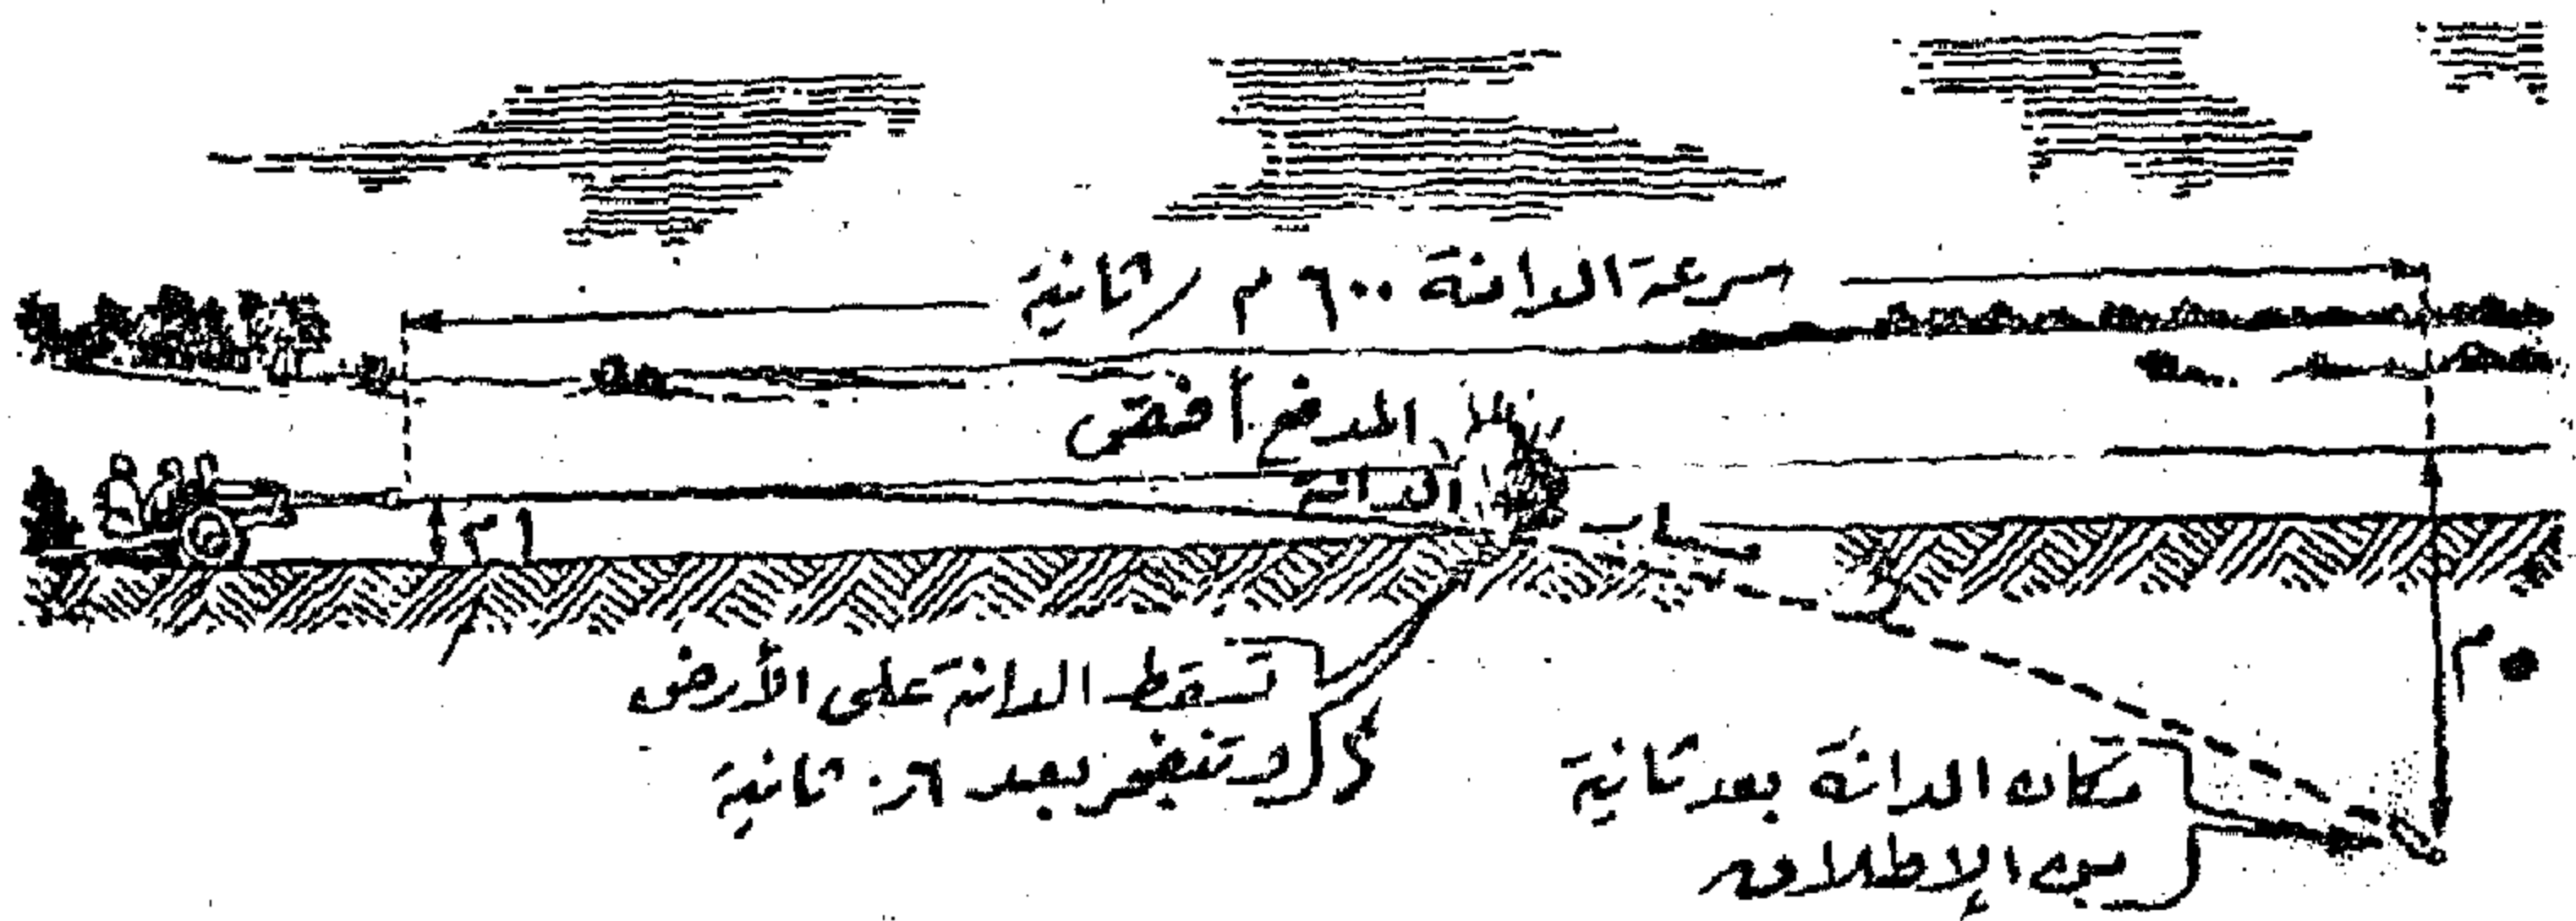 سرعة الدانة ٦٠٠ م / ثانية
المدفع أفقى
الدانة
١ م
٥ م
تسقط الدانة على الأرض
وتنفجر بعد ٦ر٠ ثانية
مكان الدانة بعد ثانية
من الإطلاق